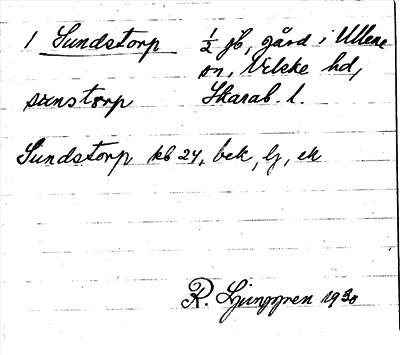 1 Sundstorp ½ jb, gård i Ullene
sn, Vilske hd,
sunstorp Skarab. l.
Sundstorp kb 24, bek, lj, ek
R. Ljunggren 1930